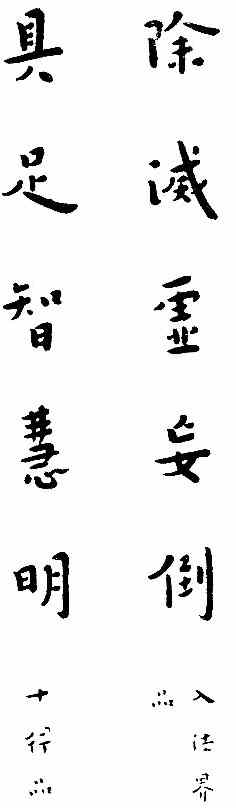 除滅虛妄倒
入法界
品
具足智慧明
十行品